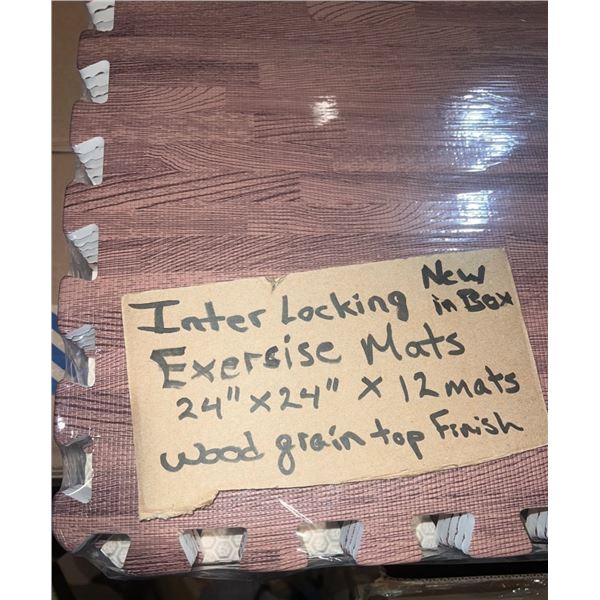 Inter Locking New
in Box
Exersise Mats
24" x 24" x 12 mats
wood grain top Finish